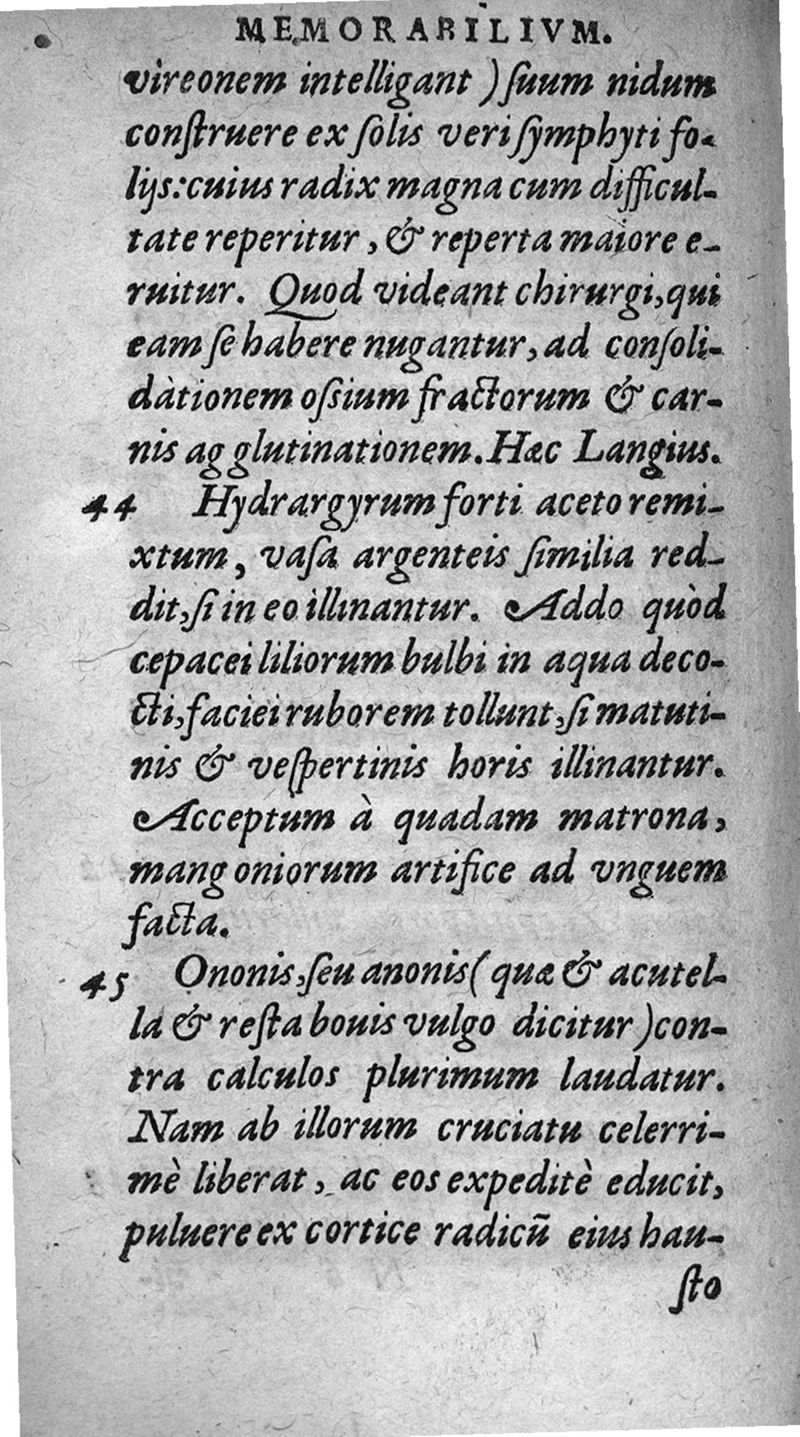 MEMORABILIVM.
vireonem intelligant ) ſuum nidum
conſtruere ex ſolis veri ſymphyti fo-
lijs: cuius radix magna cum difficul-
tate reperitur, & reperta maiore e-
ruitur. Quod videant chirurgi, qui
eam ſe habere nugantur, ad conſoli-
dàtionem oſsium fractorum & car-
nis ag glutinationem. Hæc Langius.
44 Hydrargyrum forti aceto remi-
xtum, vaſa argenteis ſimilia red-
dit, ſi in eo illinantur. Addo quòd
cepacei liliorum bulbi in aqua deco-
cti, faciei ruborem tollunt, ſi matuti-
nis & veſpertinis horis illinantur.
Acceptum à quadam matrona,
mangoniorum artifice ad vnguem
facta.
45 Ononis, ſeu anonis ( quæ & acutel-
la & reſta bouis vulgo dicitur ) con-
tra calculos plurimum laudatur.
Nam ab illorum cruciatu celerri-
mè liberat, ac eos expeditè educit,
puluere ex cortice radicũ eius hau-
ſto